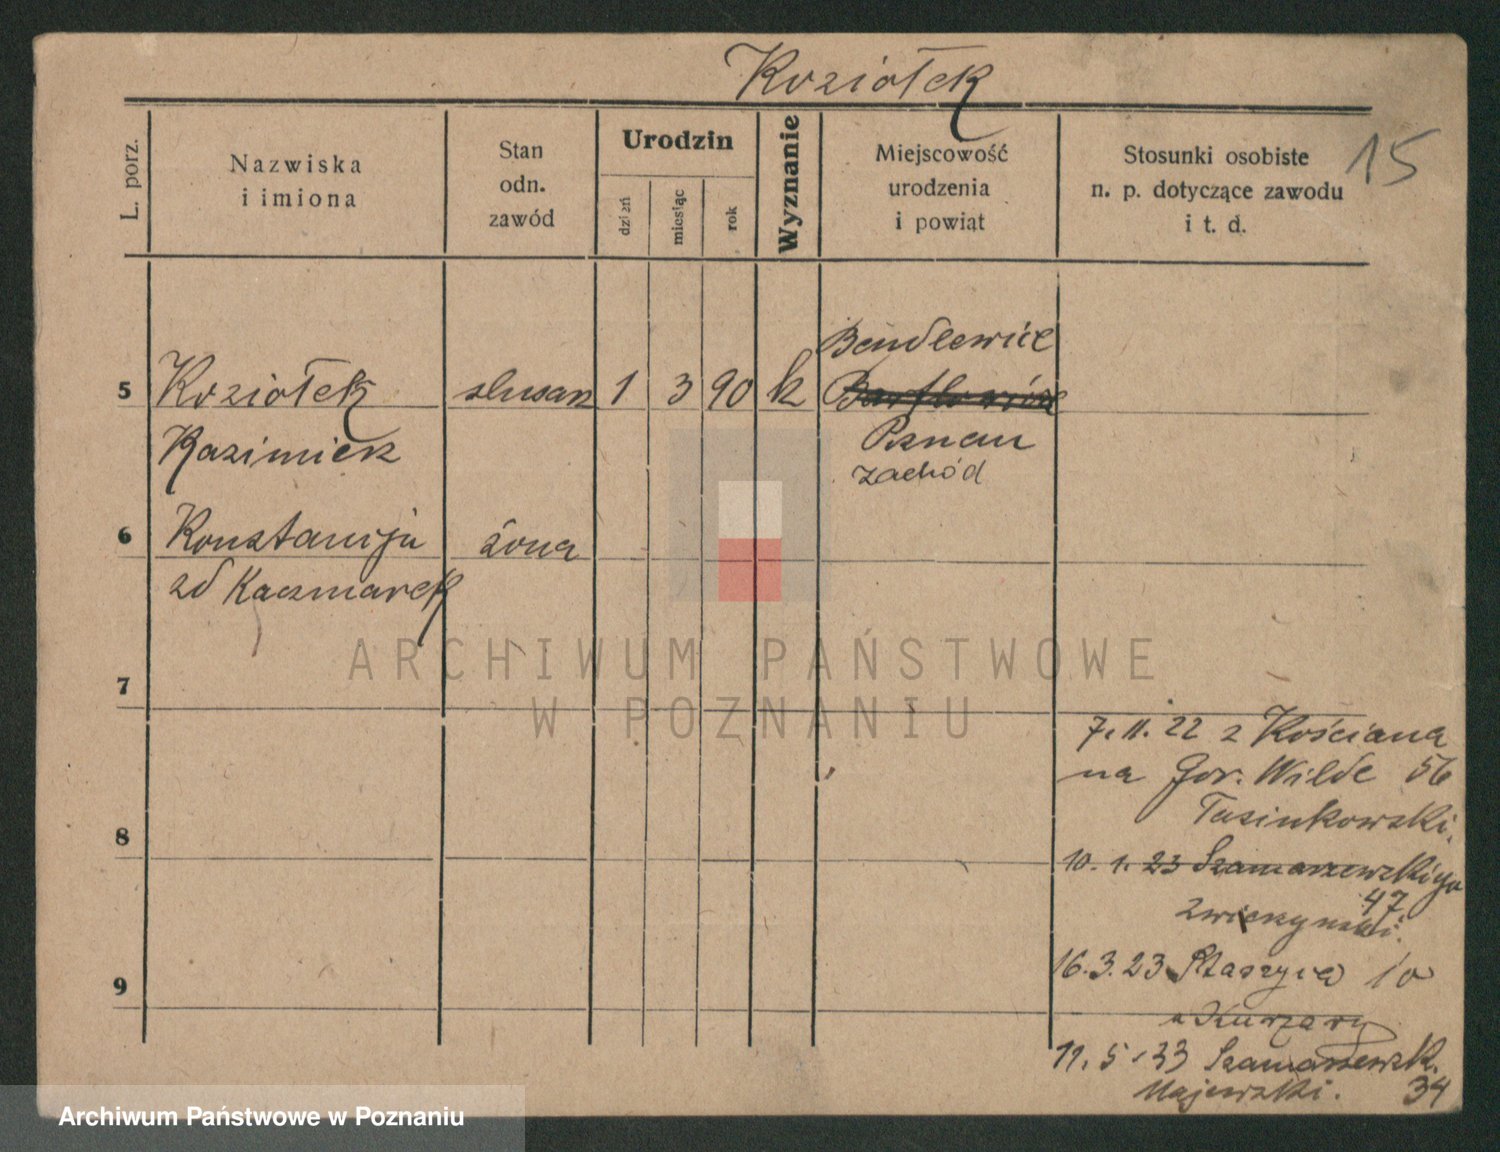 Koziołek
15
L. porz.
Nazwiska
i imiona
Stan
odn.
zawód
Urodzin
dzień
miesiąc
rok
Wyznanie
Miejscowość
urodzenia
i powiat
Stosunki osobiste
n. p. dotyczące zawodu
i t. d.
Bendlewice
5 Koziołek ślusarz 1 3 90 k
Kazimierz
Poznań
zachód
6 Konstancja żona
zd Kaczmarek
ARCHIWUM PAŃSTWOWE
W POZNANIU
7
7. 11. 22 z Kościana
na Gór. Wilde 56
Tasinkowski.
8
10. 1. 23 Szamarzewskiego
47
16. 3. 23 Staszyca 10
9
u Kurzawy
11. 5. 33 Szamarzewsk.
Majewski. 34
Archiwum Państwowe w Poznaniu